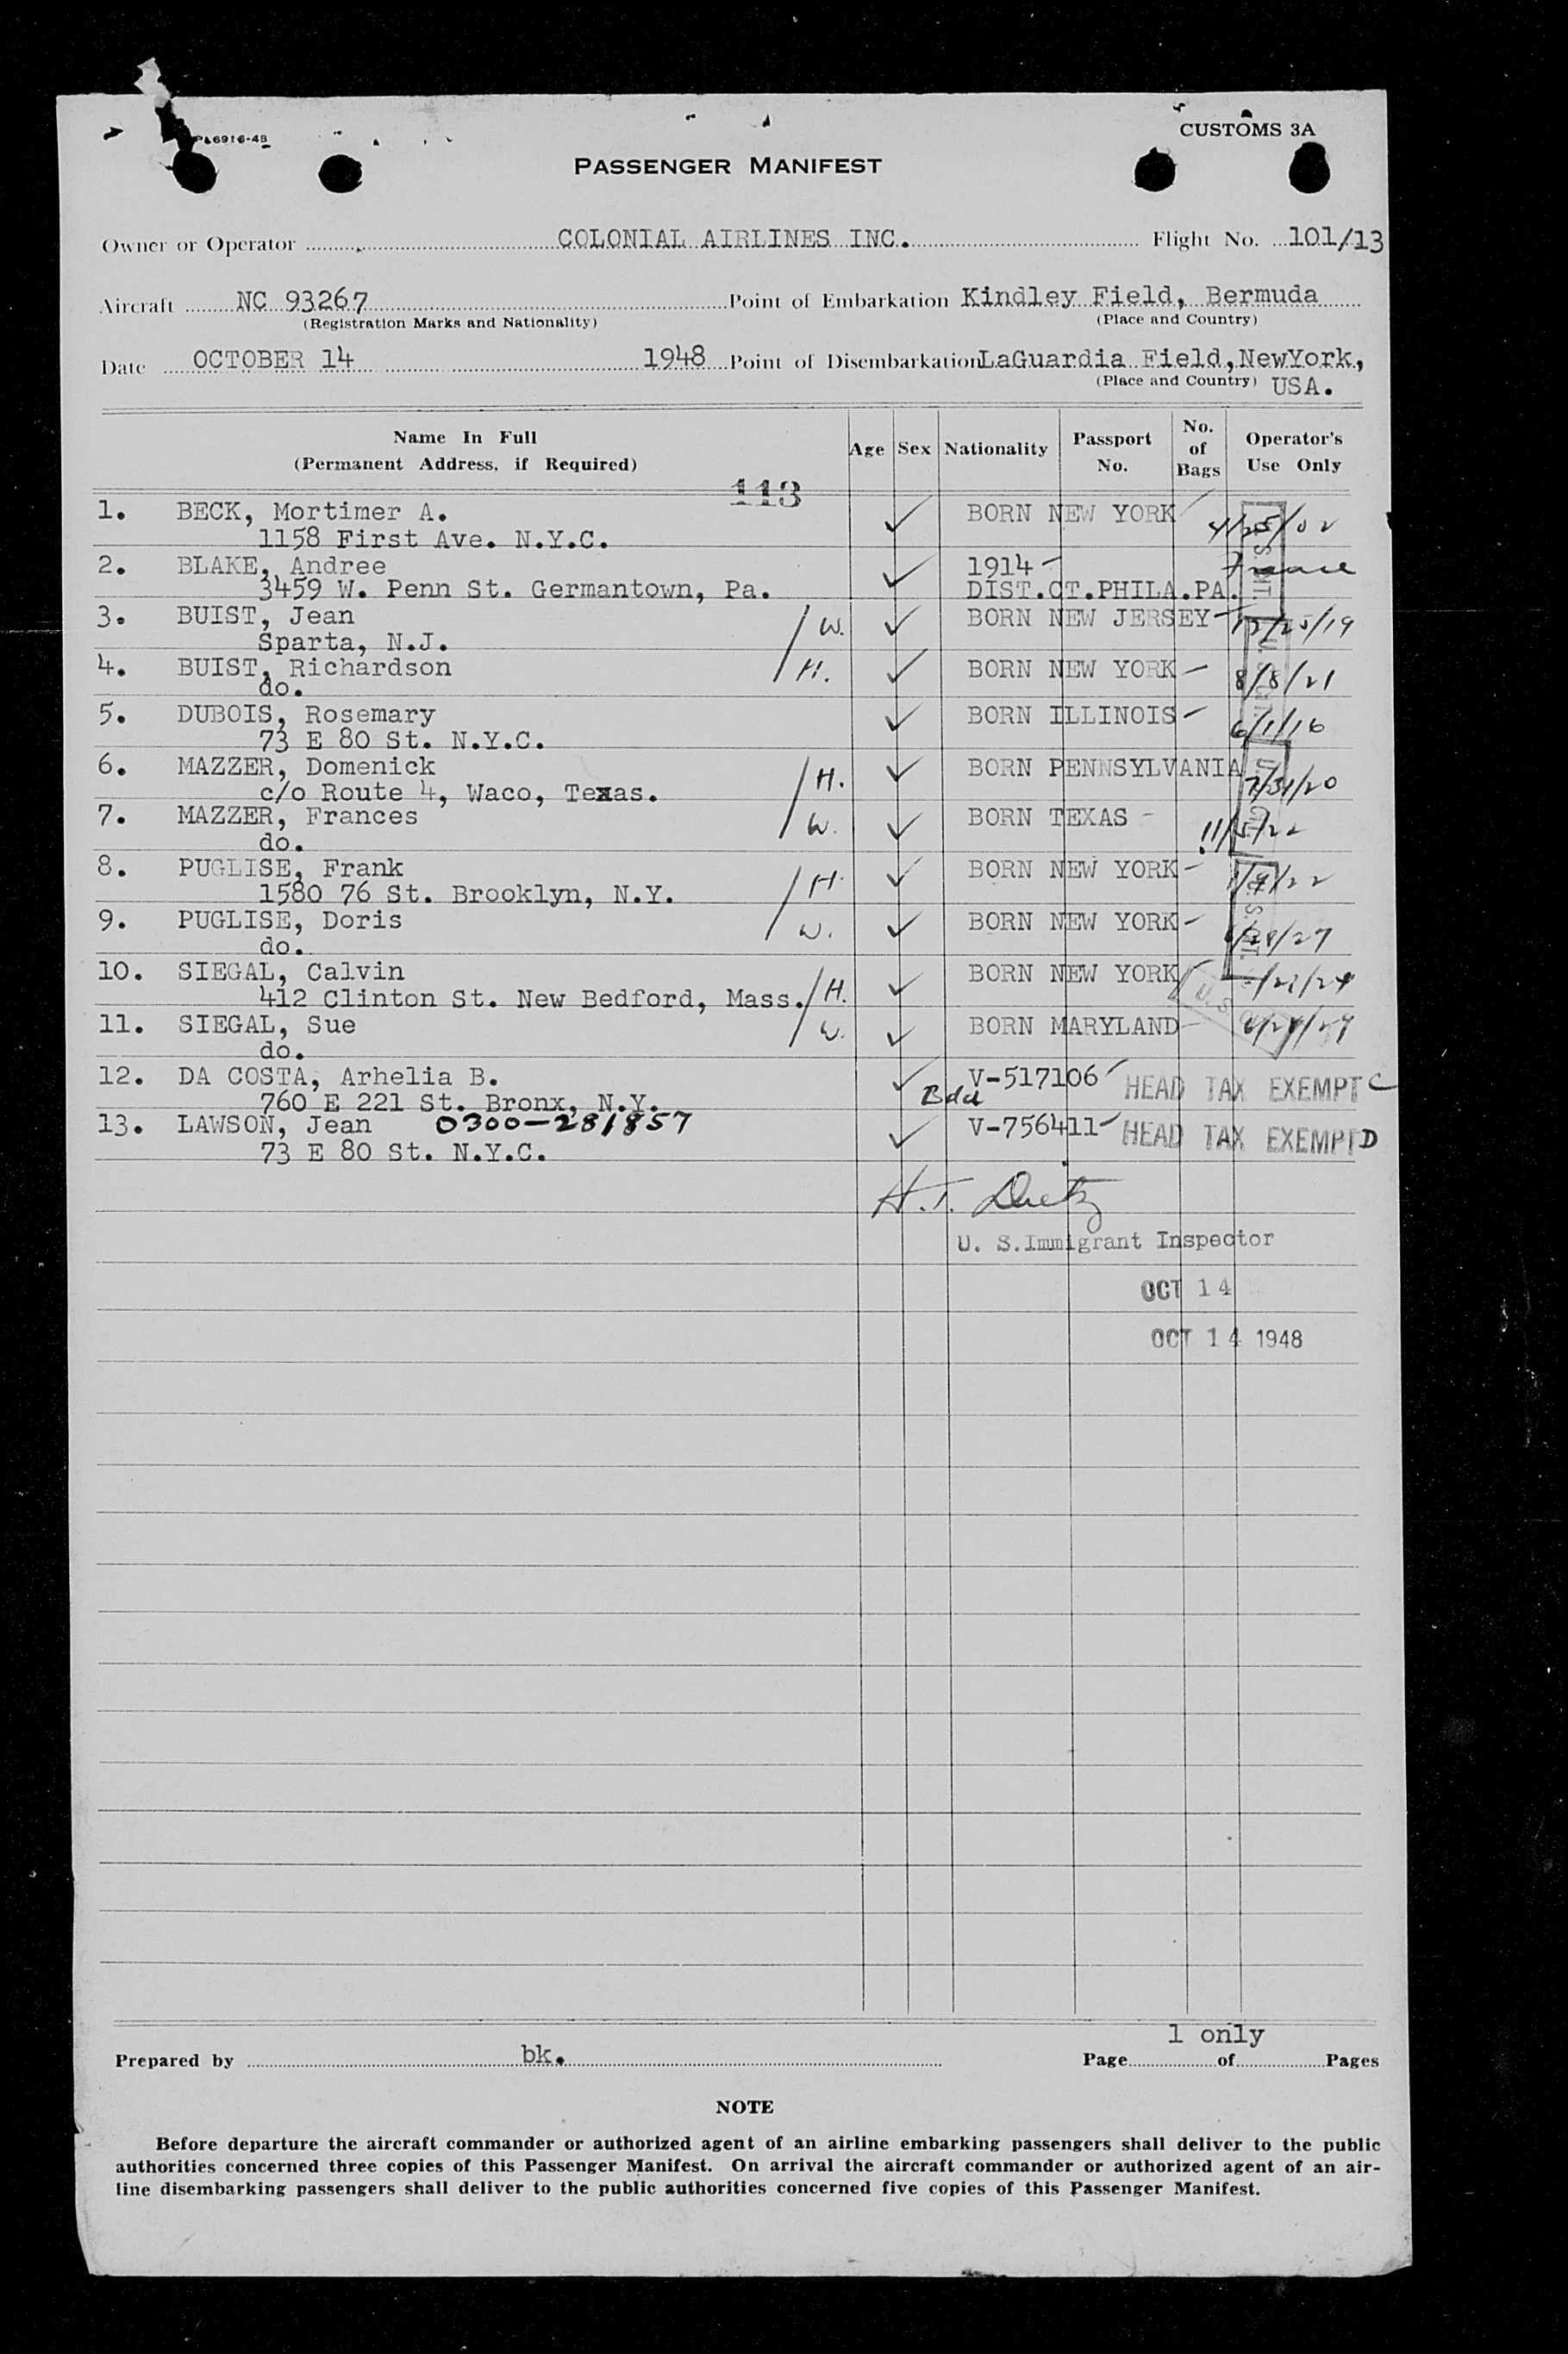 PA6916-48
CUSTOMS 3A
PASSENGER MANIFEST
Owner or Operator COLONIAL AIRLINES INC. Flight No. 101/13
Aircraft NC 93267 Point of Embarkation Kindley Field, Bermuda
(Registration Marks and Nationality) (Place and Country)
Date OCTOBER 14 1948 Point of Disembarkation LaGuardia Field, NewYork,
(Place and Country) USA.
Name In Full Age Sex Nationality Passport No. No. of Bags Operator's Use Only
(Permanent Address, if Required)
113
1. BECK, Mortimer A. BORN NEW YORK 4/25/02
1158 First Ave. N.Y.C.
2. BLAKE, Andree 1914 France
3459 W. Penn St. Germantown, Pa. DIST.CT.PHILA.PA.
3. BUIST, Jean /W. BORN NEW JERSEY 12/25/19
Sparta, N.J.
4. BUIST, Richardson /H. BORN NEW YORK 8/8/21
do.
5. DUBOIS, Rosemary BORN ILLINOIS 6/1/16
73 E 80 St. N.Y.C.
6. MAZZER, Domenick /H. BORN PENNSYLVANIA 7/31/20
c/o Route 4, Waco, Texas.
7. MAZZER, Frances /W. BORN TEXAS 11/5/22
do.
8. PUGLISE, Frank /H. BORN NEW YORK 1/9/22
1580 76 St. Brooklyn, N.Y.
9. PUGLISE, Doris /W. BORN NEW YORK /28/27
do.
10. SIEGAL, Calvin /H. BORN NEW YORK /21/24
412 Clinton St. New Bedford, Mass.
11. SIEGAL, Sue /W. BORN MARYLAND
do.
12. DA COSTA, Arhelia B. V-517106 HEAD TAX EXEMPT C
760 E 221 St. Bronx, N.Y. Bda
13. LAWSON, Jean 0300-281857 V-756411 HEAD TAX EXEMPT D
73 E 80 St. N.Y.C.
H.T. Dietz
U. S. Immigrant Inspector
OCT 14
OCT 14 1948
1 only
Prepared by bk. Page of Pages
NOTE
Before departure the aircraft commander or authorized agent of an airline embarking passengers shall deliver to the public
authorities concerned three copies of this Passenger Manifest. On arrival the aircraft commander or authorized agent of an air-
line disembarking passengers shall deliver to the public authorities concerned five copies of this Passenger Manifest.